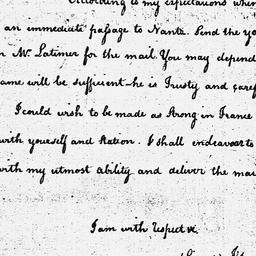 According to my expectations when
an immediate passage to Nantz. Send the yo
n Mr Latimer for the mail. You may depend
ame will be sufficient—he is Trusty and caref
I could wish to be made as strong in France
with yourself and Station. I shall endeavour to
with my utmost ability and deliver the mai
I am with respect &c.